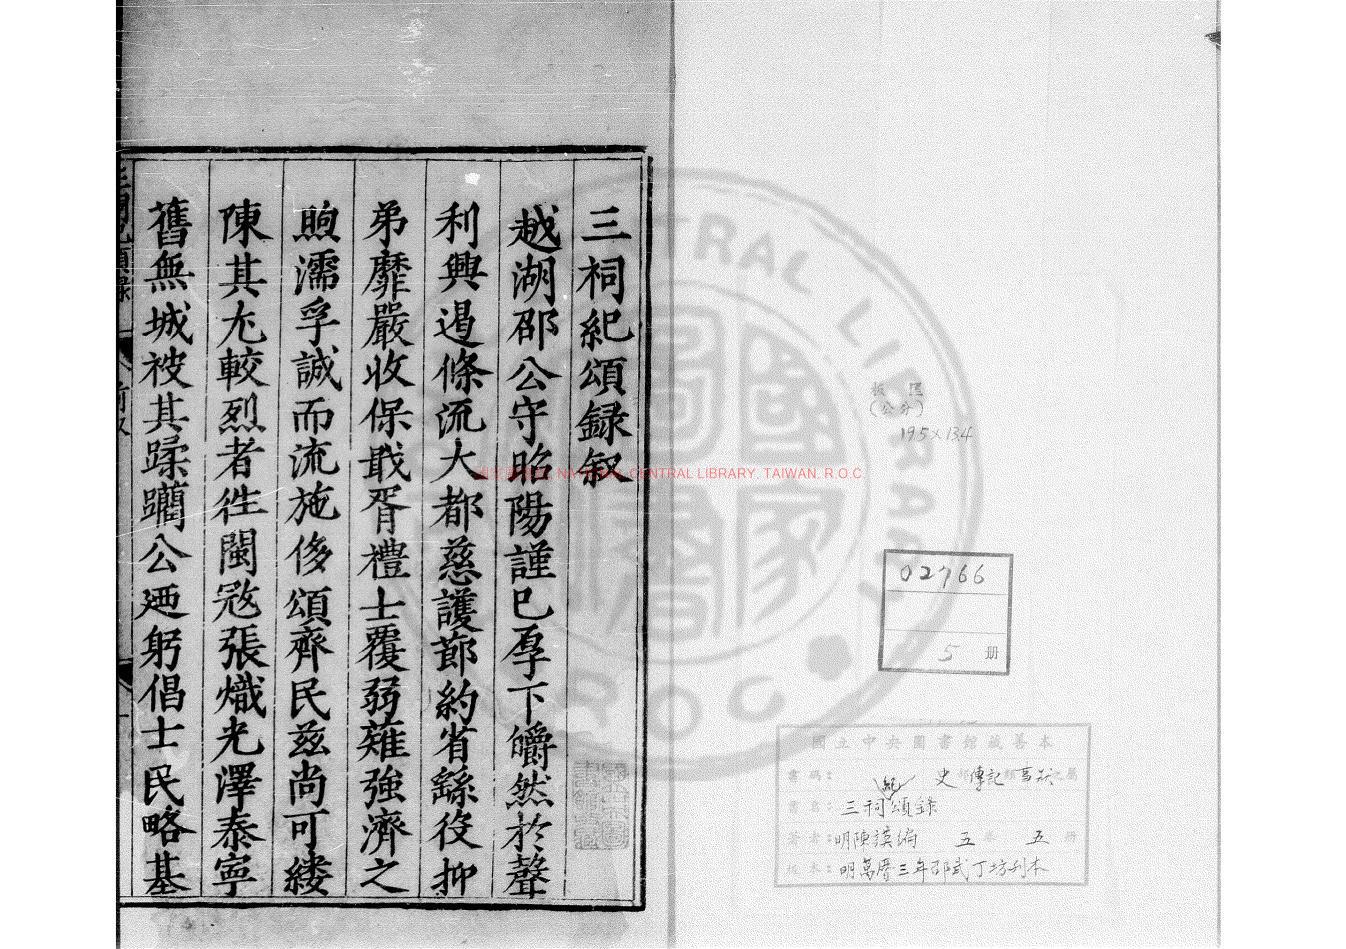 三祠紀頌録叙
越湖邵公守昭陽謹已孚下皭然於聲
利興遏條流大都慈護節約省繇役抑
弟靡嚴收保戢胥禮士覆弱薙強濟之
煦濡孚誠而流施侈頌齊民兹尚可縷
陳其尤較烈者徃閩寇張熾光澤泰寧
舊無城被其蹂躪公廼躬倡士民略基
板匡
(公分)
195×134
02766
5 册
國立中央圖書館藏善本
書碼: 史部傳記類事狀之屬
書名: 三祠紀頌錄
著者: 明陳謨編 五卷 五册
版本: 明萬曆三年邵武丁坊刊本
NATIONAL CENTRAL LIBRARY, TAIWAN, R.O.C